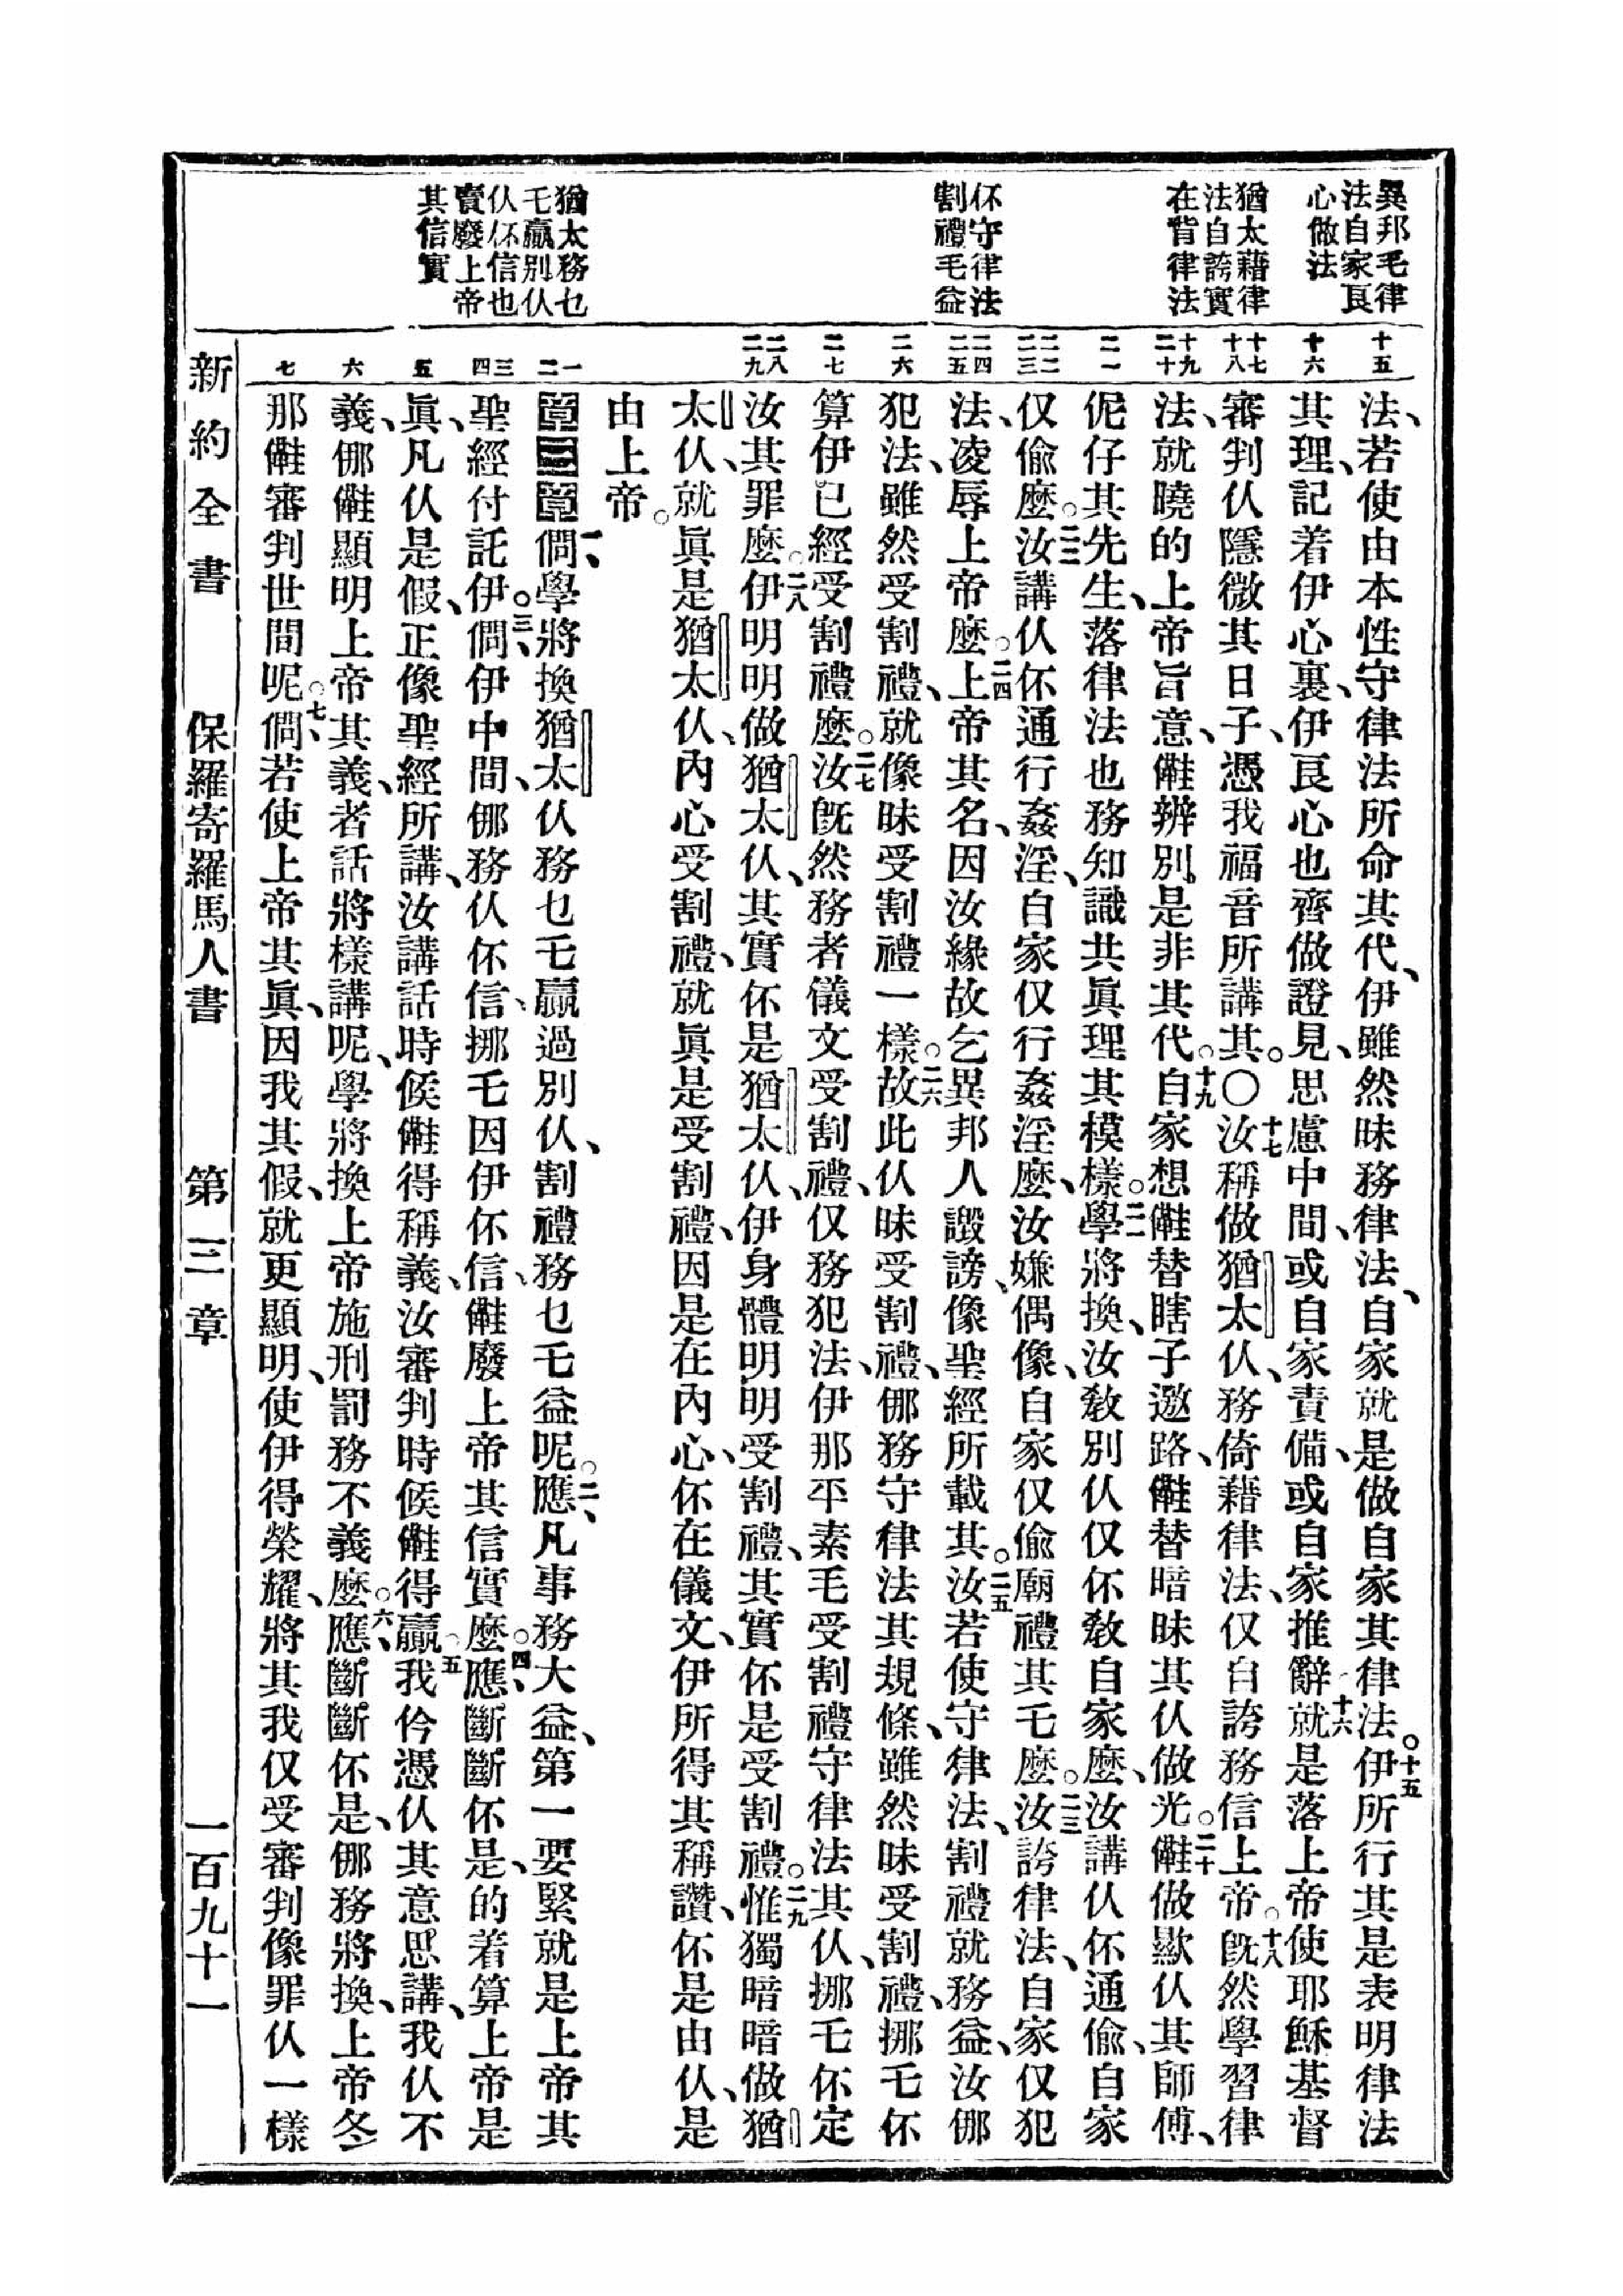 異邦毛律
法自家良
心做法
猶太藉律
法自誇實
在背律法
伓守律法
割禮毛益
猶太務乜
乇贏別仈
仈伓信也
賣廢上帝
其信實
十五
十六
十七 十八
十九 二十
二一
二二 二三
二四 二五
二六
二七
二八 二九
一 二
三 四
五
六
七
法、若使由本性守律法所命其代、伊雖然昧務律法、自家就是做自家其律法。十五伊所行其是表明律法
其理、記着伊心裏、伊良心也齊做證見、思慮中間、或自家責備、或自家推辭。十六就是落上帝使耶穌基督
審判仈隱微其日子、憑我福音所講其。〇十七汝稱做猶太仈、務倚藉律法、仅自誇務信上帝。十八旣然學習律
法、就曉的上帝旨意、𠆧辨別是非其代。十九自家想𠆧替瞎子邀路、𠆧替暗昧其仈做光。二十𠆧做歎仈其師傅、
伲仔其先生、落律法也務知識共眞理其模樣。二一學將換、汝敎別仈仅伓敎自家麽、汝講仈伓通偸、自家
仅偸麽。二二汝講仈伓通行姦淫、自家仅行姦淫麽、汝嫌偶像、自家仅偸廟禮其乇麽。二三汝誇律法、自家仅犯
法、凌辱上帝麽。二四上帝其名、因汝緣故乞異邦人譭謗、像聖經所載其。二五汝若使守律法、割禮就務益、汝倻
犯法、雖然受割禮、就像昧受割禮一樣。二六故此仈昧受割禮、倻務守律法其規條、雖然昧受割禮、挪乇伓
算伊已經受割禮麽。二七汝旣然務者儀文受割禮、仅務犯法、伊那平素毛受割禮守律法其仈、挪乇伓定
汝其罪麽。二八伊明明做猶太仈、其實伓是猶太仈、伊身體明明受割禮、其實伓是受割禮。二九惟獨暗暗做猶
太仈、就眞是猶太仈、內心受割禮、就眞是受割禮、因是在內心、伓在儀文、伊所得其稱讚、伓是由仈、是
由上帝。
第三章 一、僩學將換猶太仈務乜乇贏過別仈、割禮務乜乇益呢。二、應、凡事務大益、第一要緊就是上帝其
聖經付託伊。三、僩伊中間、倻務仈伓信、挪乇因伊伓信、𠆧廢上帝其信實麽。四、應、斷斷伓是、的着算上帝是
眞、凡仈是假、正像聖經所講、汝講話時候𠆧得稱義、汝審判時候𠆧得贏。五我伶憑仈其意思講、我仈不
義、倻𠆧顯明上帝其義、者話將樣講呢、學將換上帝施刑罰務不義麽。六、應、斷斷伓是、倻務將換、上帝冬
那𠆧審判世間呢。七、僩若使上帝其眞、因我其假、就更顯明、使伊得榮耀、將其我仅受審判像罪仈一樣
新約全書 保羅寄羅馬人書 第三章 一百九十一